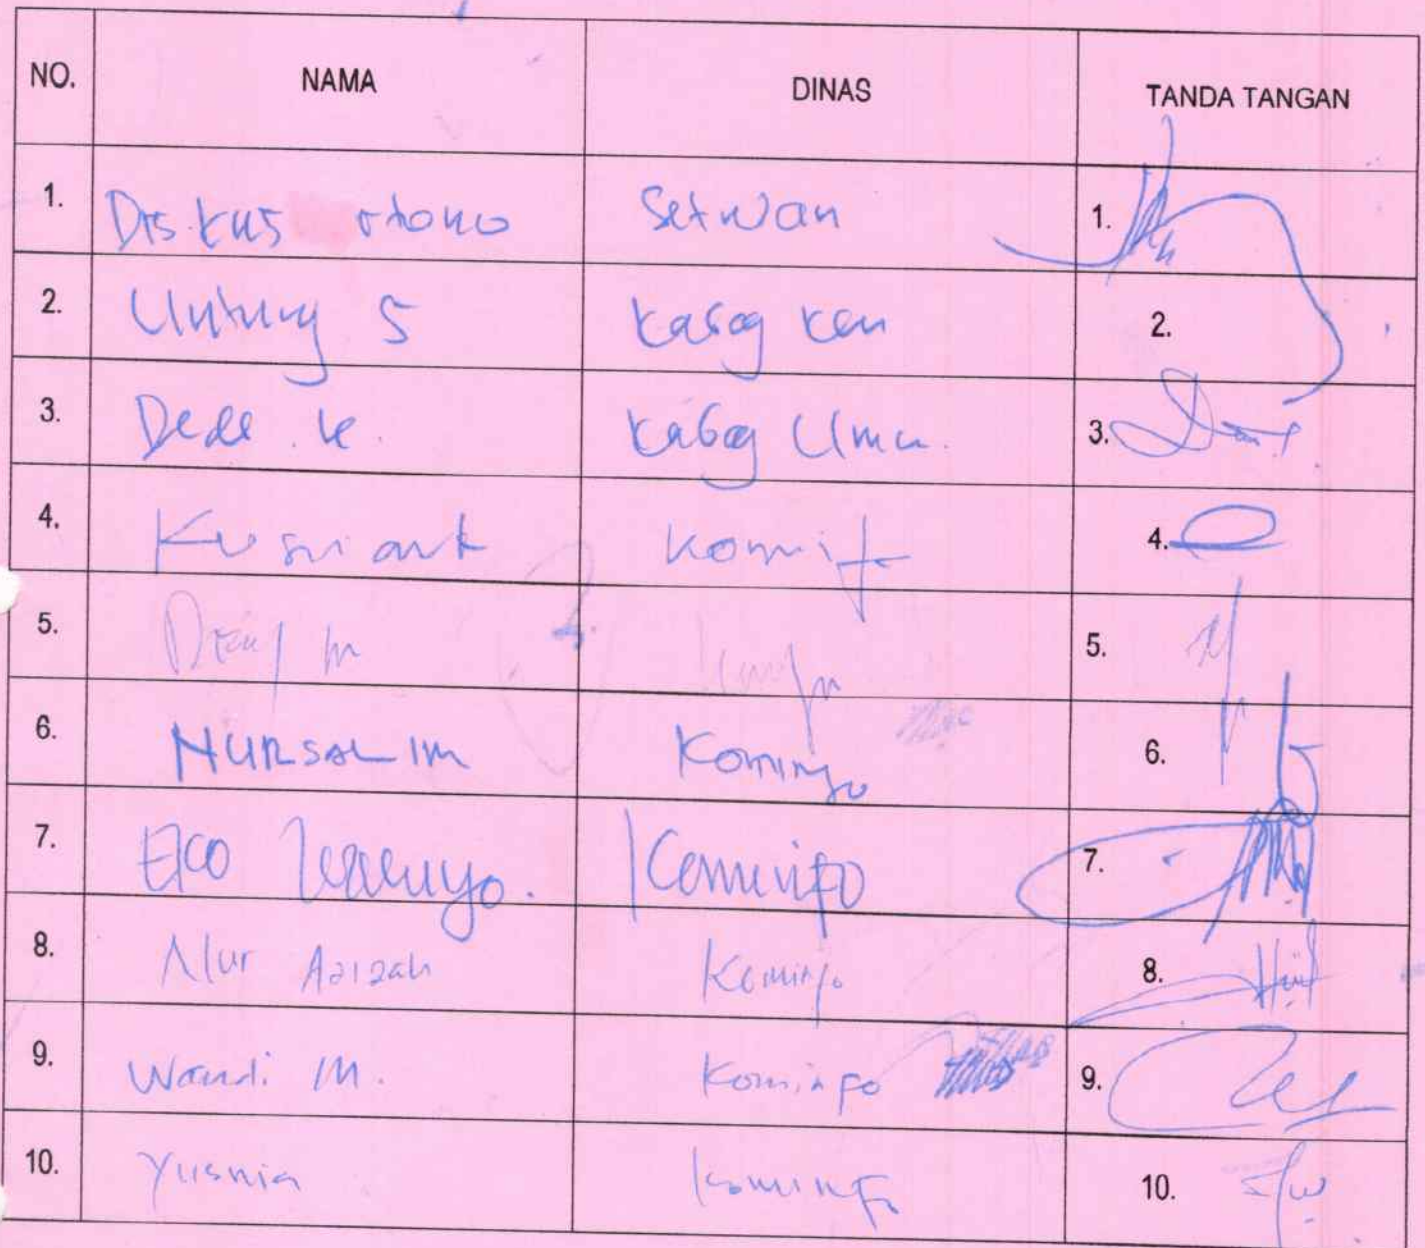 NO. NAMA DINAS TANDA TANGAN
1. Setwan 1.
2. Untung S Kabag Keu 2.
3. Dede. K. Kabag Umu. 3.
4. 4.
5. 5.
6. NURSALIM Kominfo 6.
7. EKO Kominfo 7.
8. Nur Azizah Kominfo 8.
9. Wandi M. Kominfo 9.
10. Yusnia Kominfo 10.